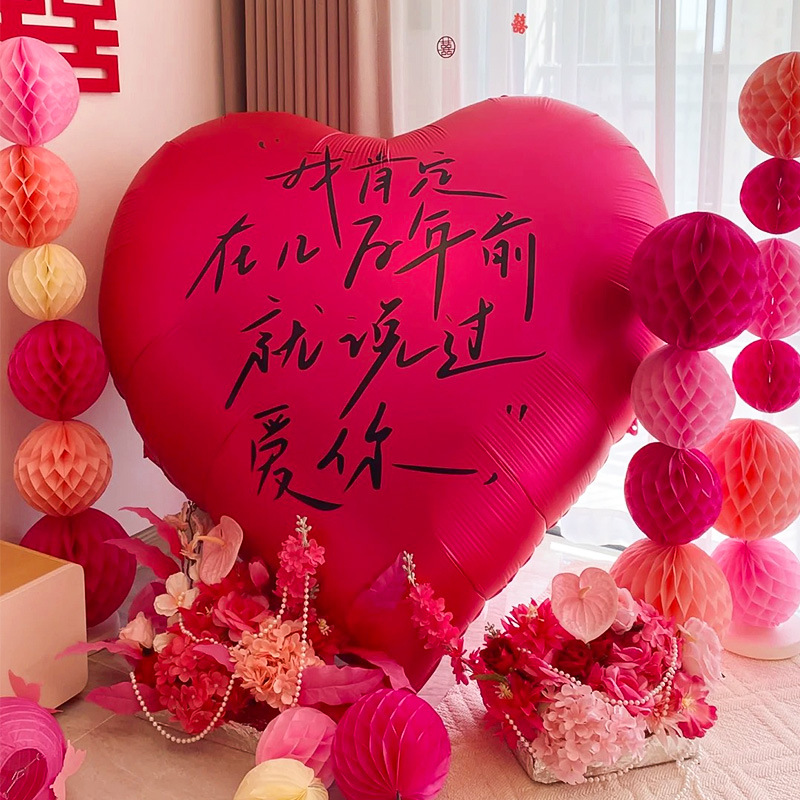 囍
囍
囍
"我肯定
在几百年前
就说过
爱你，"